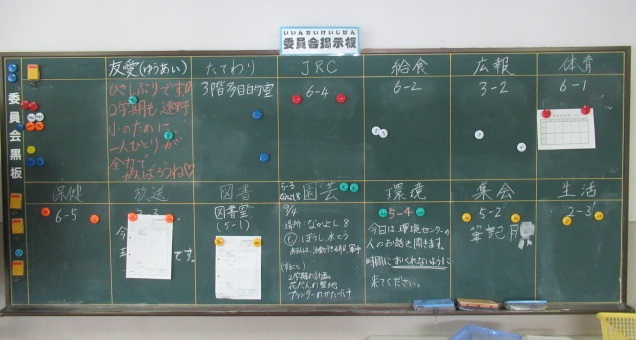 いいんかいけいじばん
委員会掲示板
委員会黒板
友愛(ゆうあい)
ひさしぶりです♡
2学期も遠野
小のために
一人ひとりが
全力で
がんばろうね♡
たてわり
3階多目的室
JRC
6-4
給食
6-2
広報
3-2
体育
6-1
保健
6-5
放送
です。
図書
図書室
(5-1)
園芸
5-3
9/4
場所:なかよし8
ぼうし、水とう
2学期の計画
花だんの整地
プランターのかたづけ
環境
5-4
今日は、環境センターの
人のお話を聞きます。
時間におくれないように
来てください。
集会
5-2
筆記用
生活
2-3